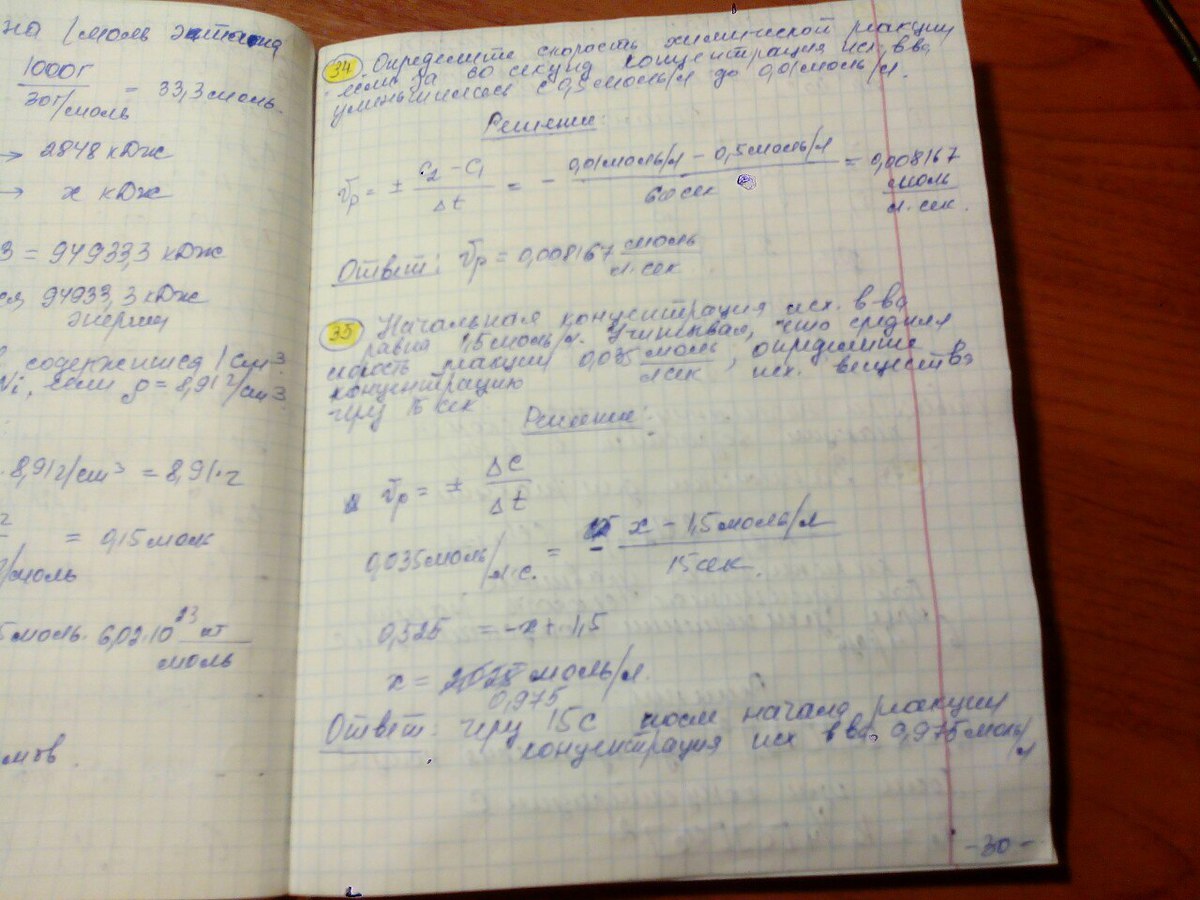 на 1 моль этана
1000г
30г/моль = 33,3 моль.
→ 2848 кДж
→ х кДж
3 = 94933,3 кДж
ся 94933,3 кДж
энергии
содержится 1 см³
Ni, если ρ = 8,91 г/см³
8,91 г/см³ = 8,91 г
= 0,15 моль
г/моль
5 моль · 6,02·10²³ шт
моль
34 Определите скорость химической реакции
если за 60 секунд концентрация исх. в-ва
уменьшилась с 0,5 моль/л до 0,01 моль/л.
Решение:
υр = ± C₂ – C₁ / Δt = – 0,01 моль/л – 0,5 моль/л / 60 сек = 0,008167 моль / л.сек.
Ответ: υр = 0,008167 моль / л.сек
35 Начальная концентрация исх. в-ва
равна 1,5 моль/л. Учитывая, что средняя
скорость реакции 0,035 моль / л сек, определите
концентрацию исх. вещества
через 15 сек
Решение:
υр = ± Δc / Δt
0,035 моль/л·с. = – х – 1,5 моль/л / 15 сек.
0,525 = –х + 1,5
х = моль/л.
0,975
Ответ: через 15 с после начала реакции
концентрация исх в-ва 0,975 моль/л
- 30 -